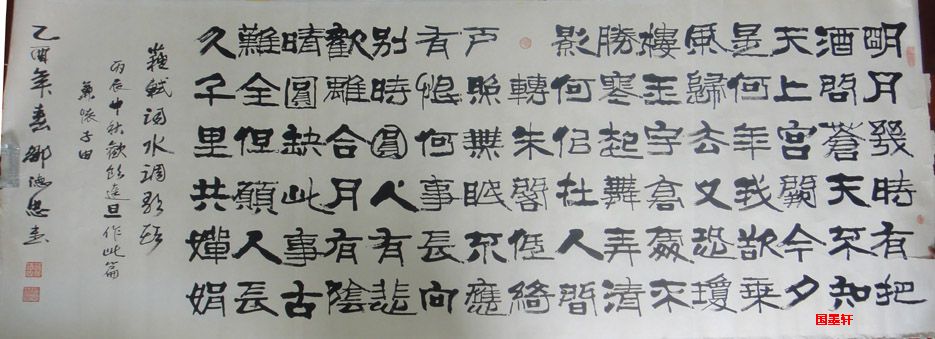 明月幾時有把
酒問蒼天不知
天上宮闕今夕
是何年我欲乘
風歸去又恐瓊
樓玉宇高處不
勝寒起舞弄清
影何似在人間
轉朱閣低綺
戶照無眠不應
有恨何事長向
別時圓人有悲
歡離合月有陰
晴圓缺此事古
難全但願人長
久千里共嬋娟
蘇軾詞水調歌頭
丙辰中秋歡飲達旦作此篇
兼懷子由
乙酉年春鄒德忠書
国墨轩